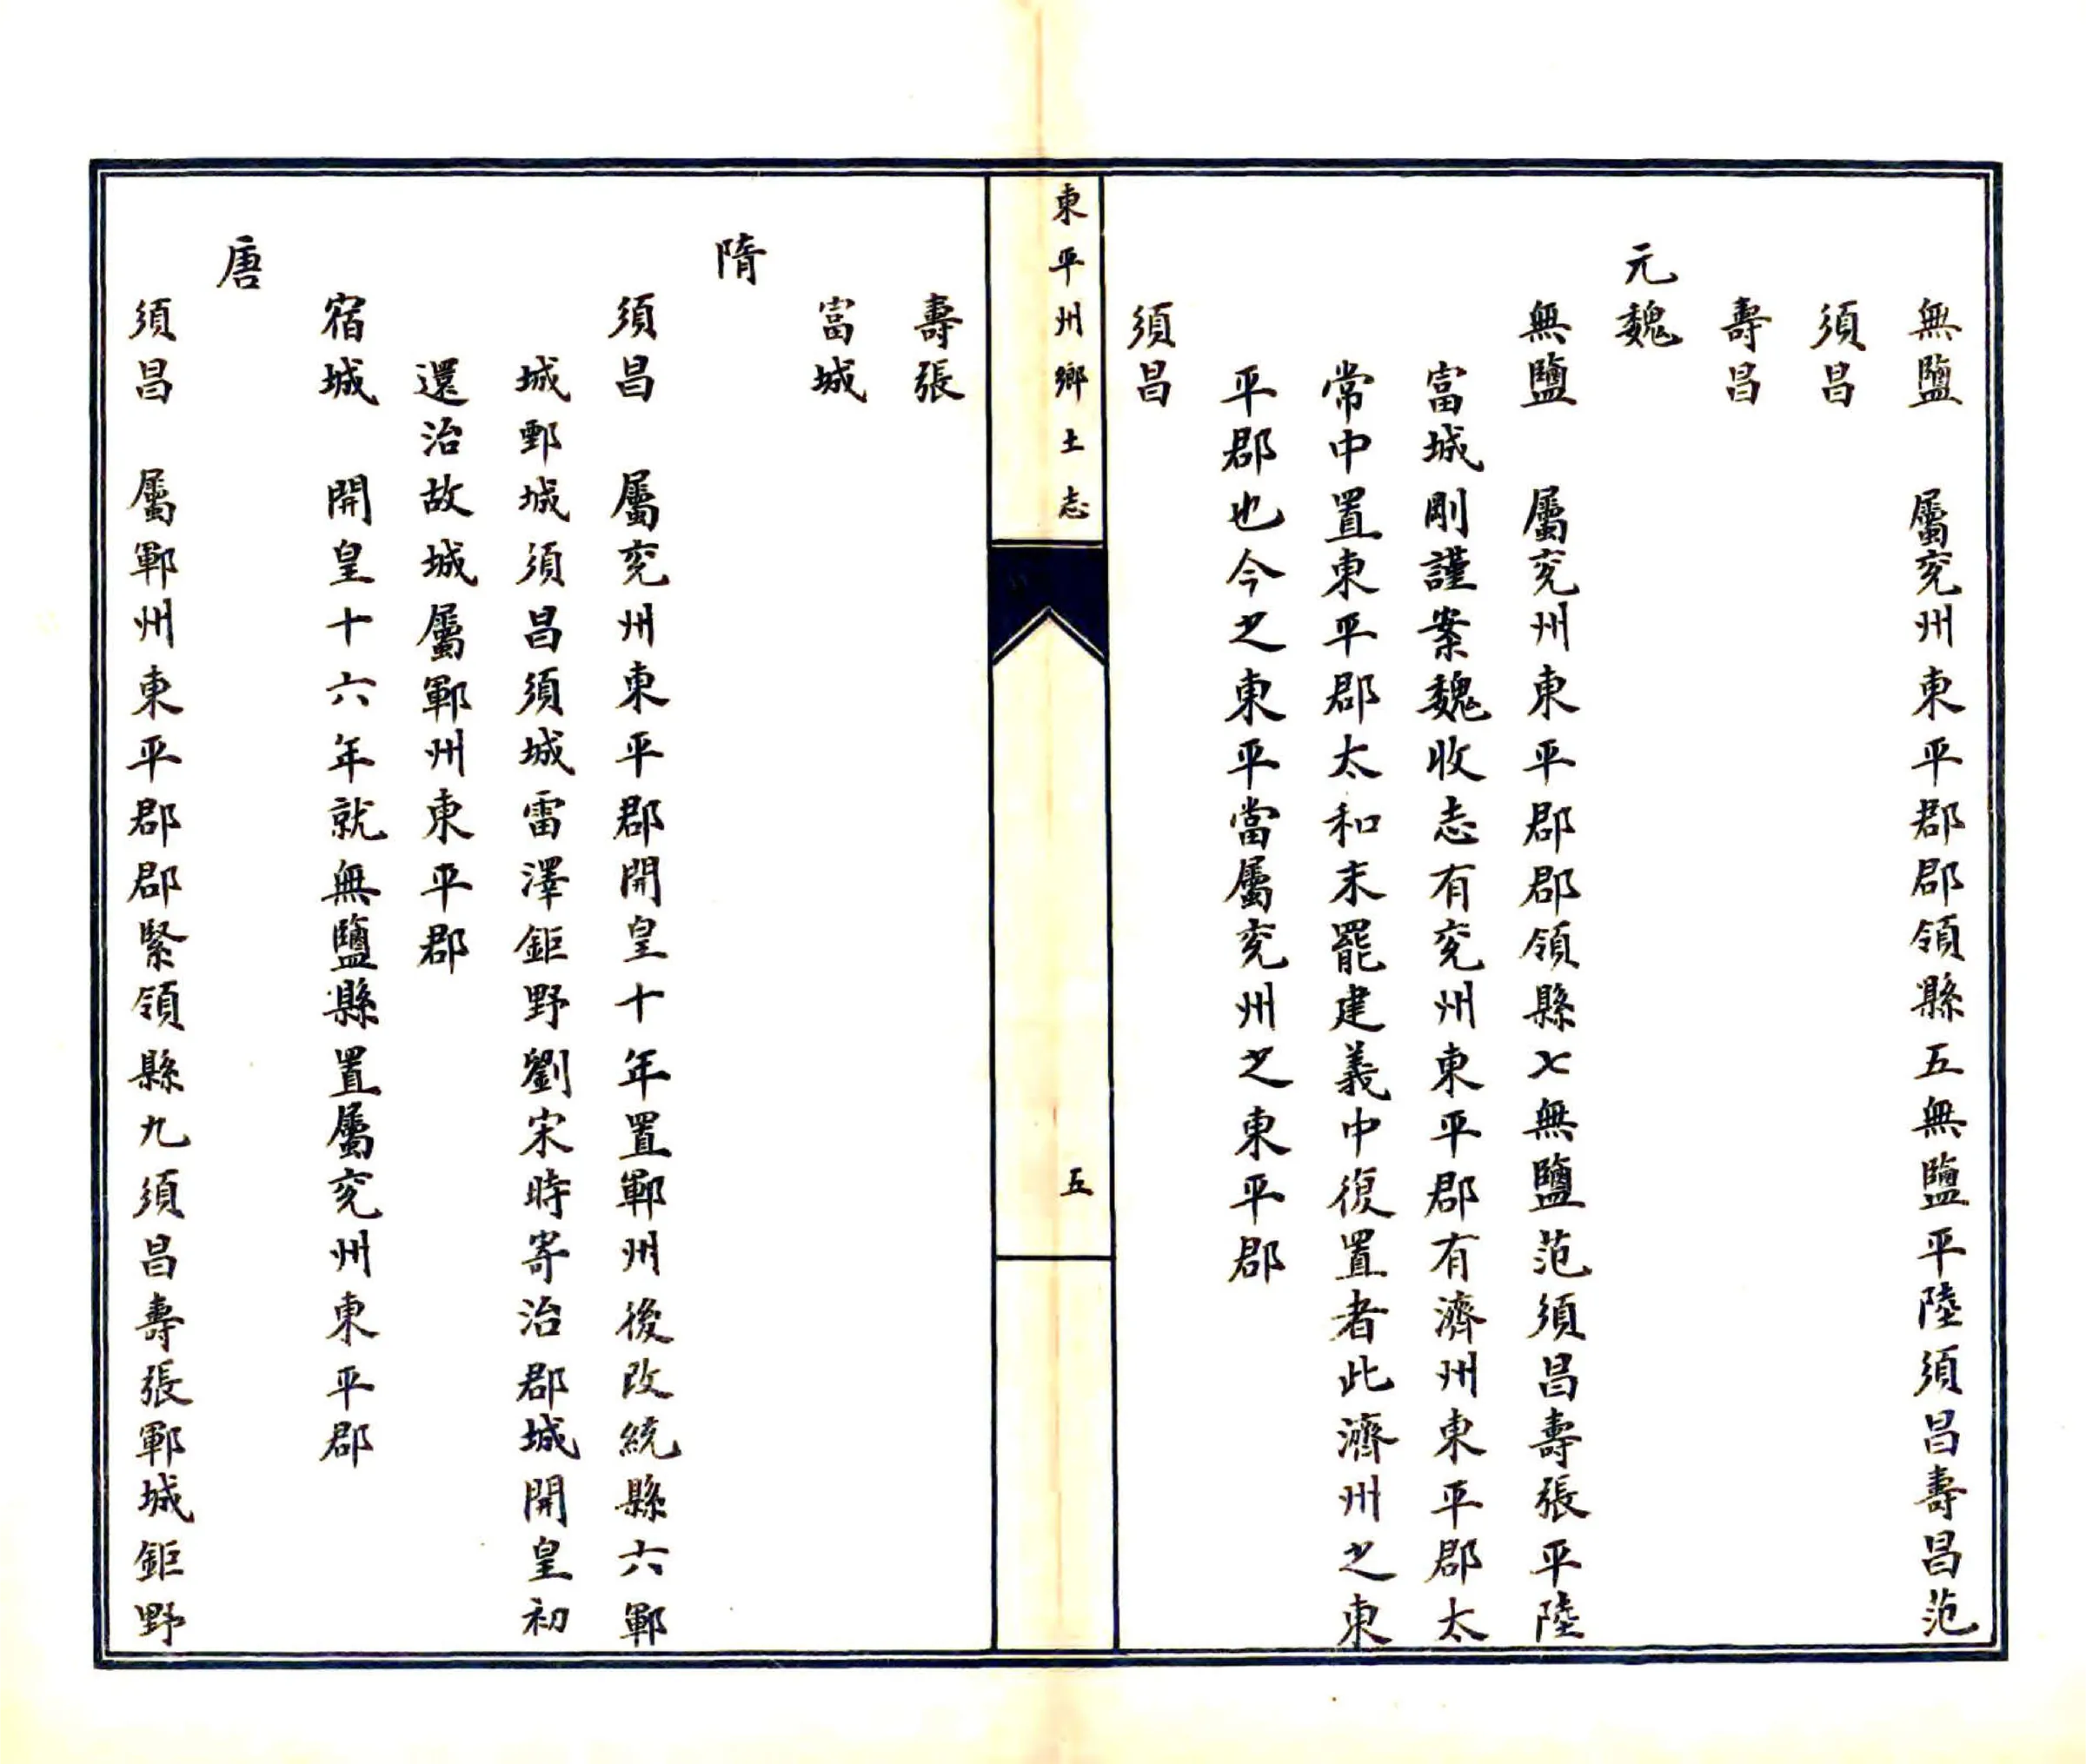 無鹽　屬兗州東平郡郡領縣五無鹽平陸須昌壽昌范
須昌
壽昌
元魏
無鹽　屬兗州東平郡郡領縣七無鹽范須昌壽張平陸
富城剛謹案魏收志有兗州東平郡有濟州東平郡太
常中置東平郡太和末罷建義中復置者此濟州之東
平郡也今之東平當屬兗州之東平郡
須昌
東平州鄉土志
五
壽張
富城
隋
須昌　屬兗州東平郡開皇十年置鄆州後改統縣六鄆
城鄄城須昌須城雷澤鉅野劉宋時寄治郡城開皇初
還治故城屬鄆州東平郡
宿城　開皇十六年就無鹽縣置屬兗州東平郡
唐
須昌　屬鄆州東平郡郡緊領縣九須昌壽張鄆城鉅野